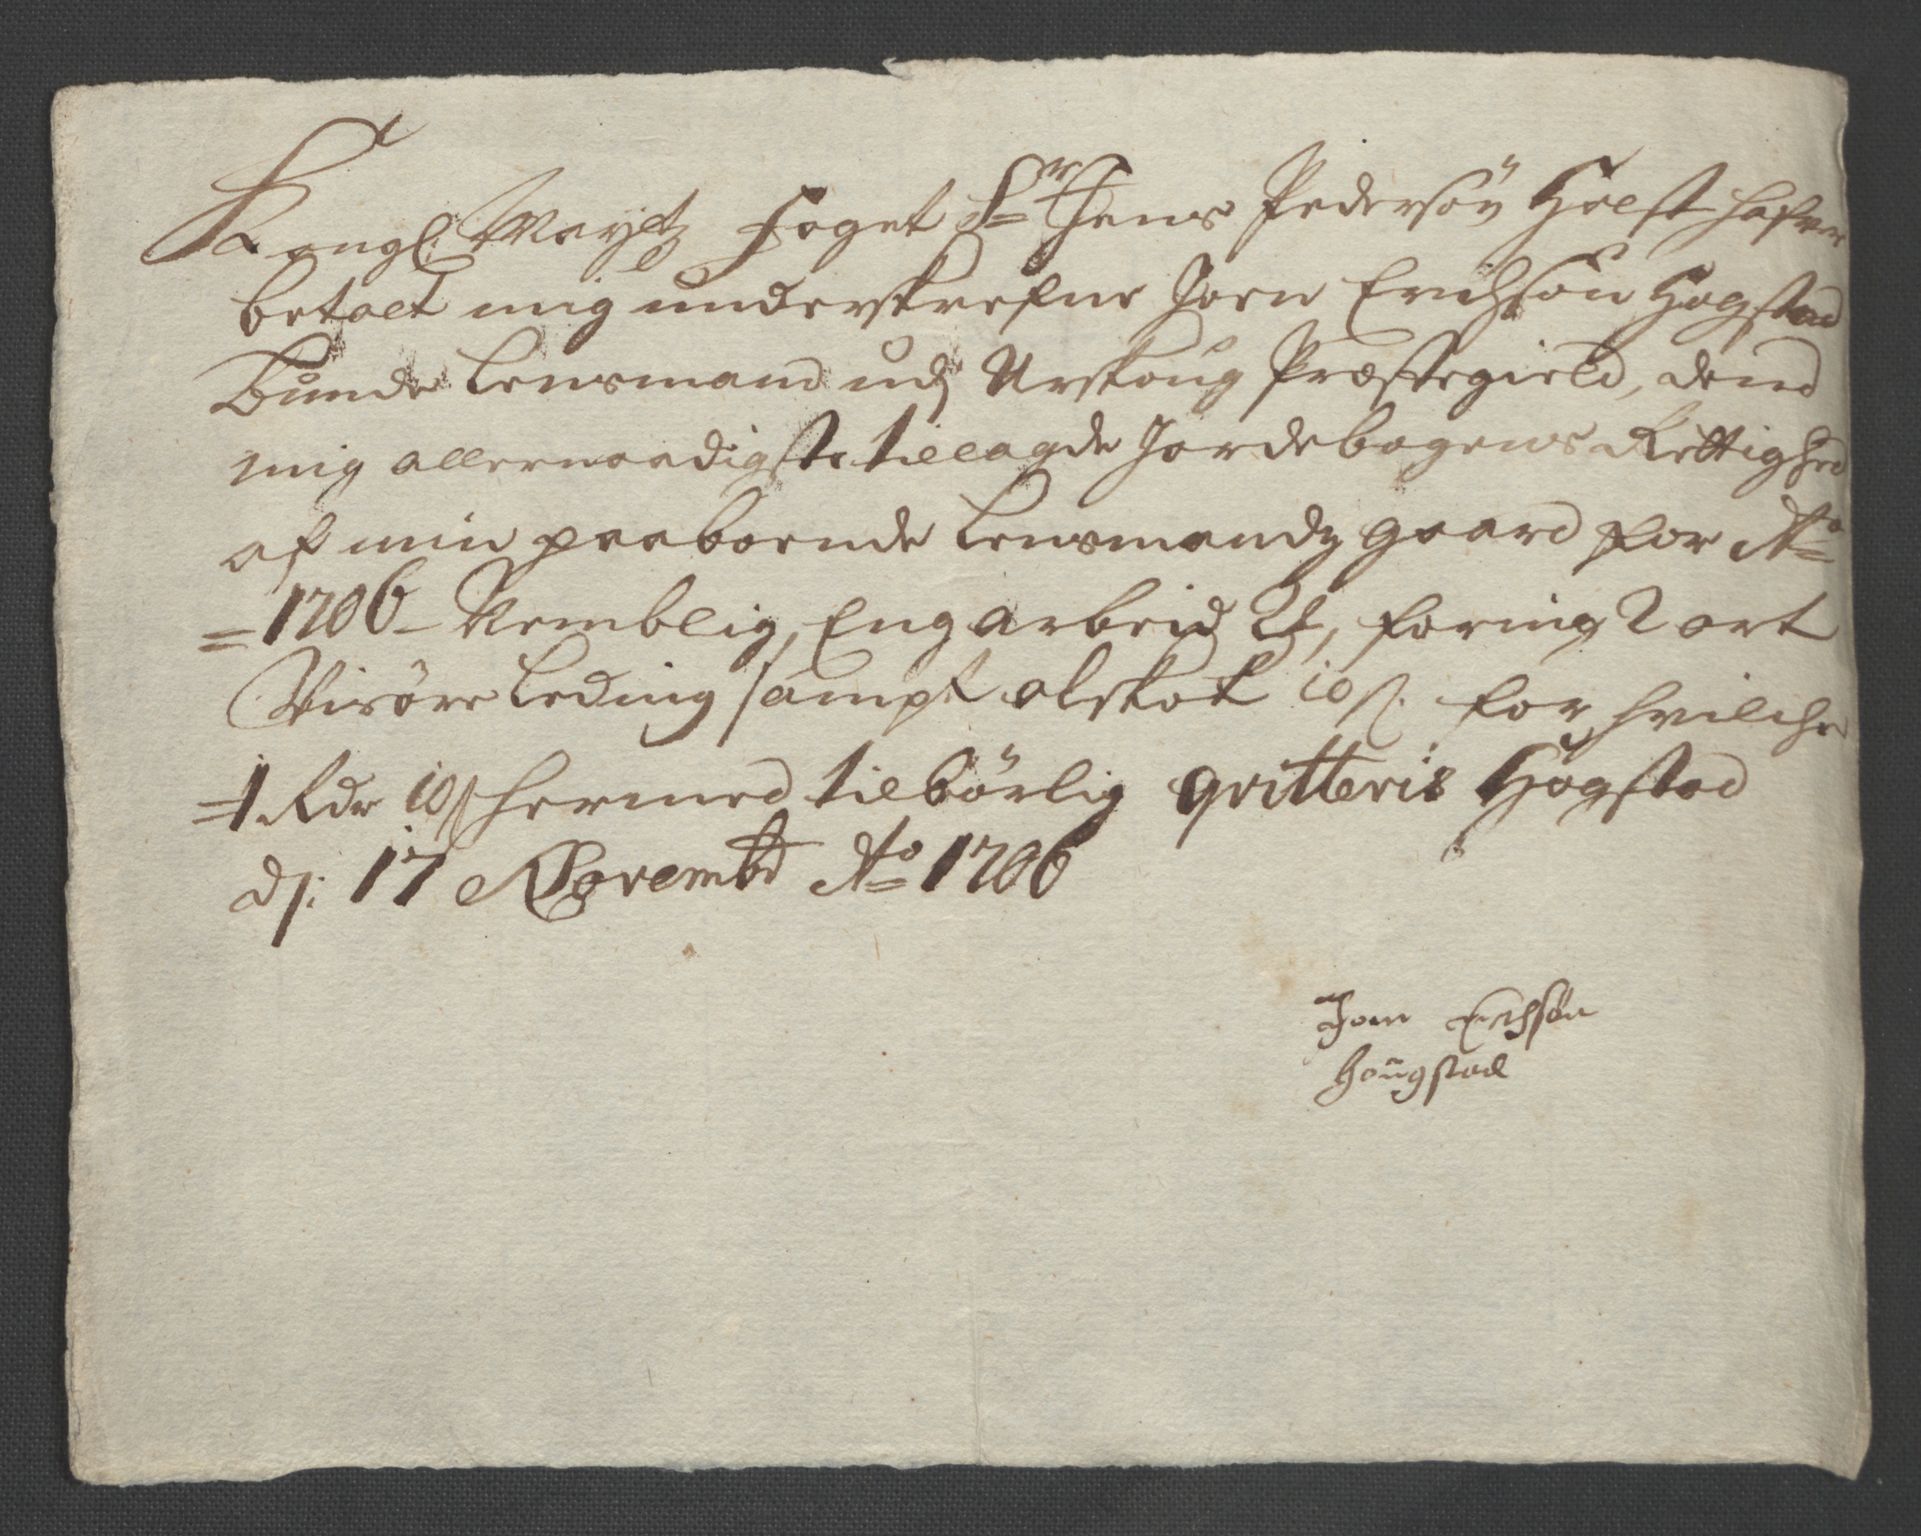 Kongl. Mayttz Foget Sr Jens Pedersøn Holst hafver
betalt mig underskrefne Joen Erichsøn Hogstad
Bunde Lensmand udj Urskoug Præstegield, dend
mig allernaadigste tillagde Jordebogens Rettighed
af min paaboende Lensmandz gaard for Ao
= 1706 - Nemblig, Engarbeid 2 ort, foring 2 ort
Visøre Leding sampt alskot 10 s. for hvilche
= 1 Rdr 10 s hermed tilbørlig qvitteris Hogstad
ds: 17 Novembr Ao 1706
Joen Erichsøn
Hougstad